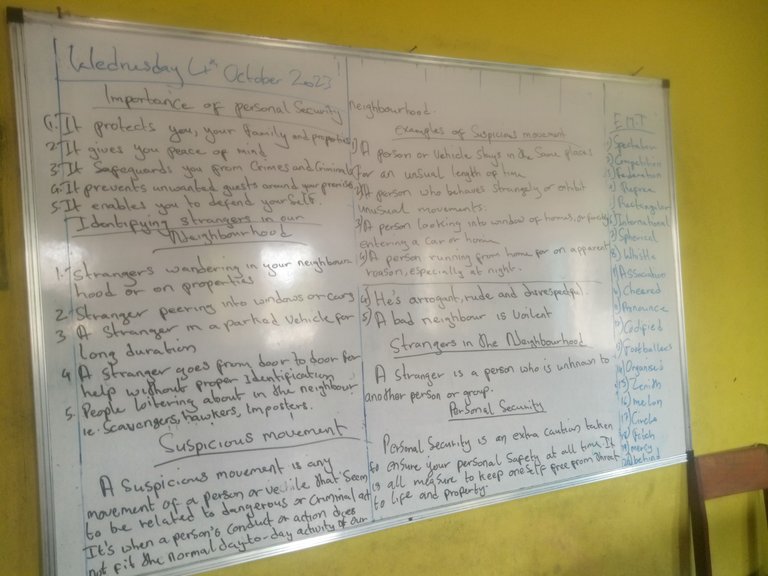 Wednesday 4th October 2023
Importance of personal Security
1. It protects you, your family and properties
2. It gives you peace of mind
3. It Safeguards you from Crimes and Criminals
4. It prevents unwanted guests around your premise
5. It enables you to defend yourself.
Identifying strangers in our
Neighbourhood
1. Strangers wandering in your neighbour
hood or on properties
2. Stranger peering into windows or cars
3 A Stranger in a parked vehicle for
long duration
4 A stranger goes from door to door for
help without proper Identification
5. People loitering about in the neighbour
ie. Scavangers, hawkers, Imposters.
Suspicious movement
A Suspicious movement is any
movement of a person or vehile that Seem
to be related to dangerous or Criminal act
It's when a person's conduct or action does
not fit the normal day-to-day activity of our
neighbourhood.
Examples of Suspicious movement
1) A person or Vehicle Stays in the Same places
for an unsual length of time
2) A person who behaves strangely or exhibit
unusual movements.
3) A person looking into window of homes, or
entering a car or home
4) A person running from home for on apparent
reason, especially at night.
4) He's arrogant, rude and disrespedful.
5) A bad neighbour is Voilent
Strangers in the Neighbourhood
A Stranger is a person who is unknown to
another person or group.
Personal Security
Personal Security is an extra caution taken
to ensure your personal Safety at all time. It
is all measure to keep oneself free from threat
to life and property.
Spectators
Competition
Federation
Rectangular
International
7) Spherical
8) Whistle
Association
Cheered
Announce
Codified
Footballers
14) Organised
15) Zenith
16) melon
17) Circle
18) Pitch
19) mercy
20) behind